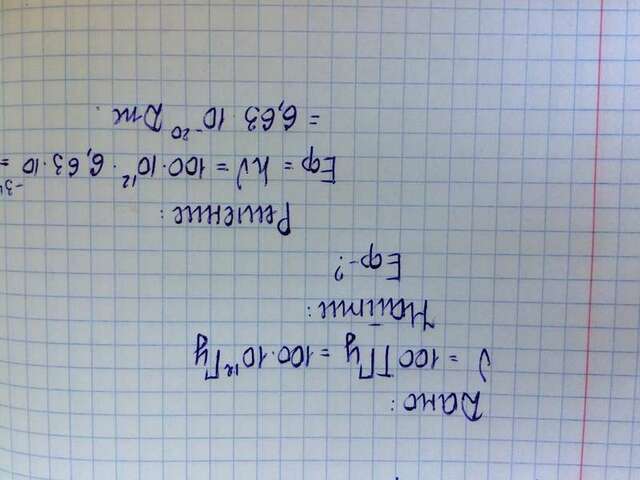 Дано:
ν = 100 ТГц = 100·10¹² Гц
Найти:
Eф-?
Решение:
Eф = hν = 100·10¹² · 6,63·10⁻³⁴ =
= 6,63·10⁻²⁰ Дж.